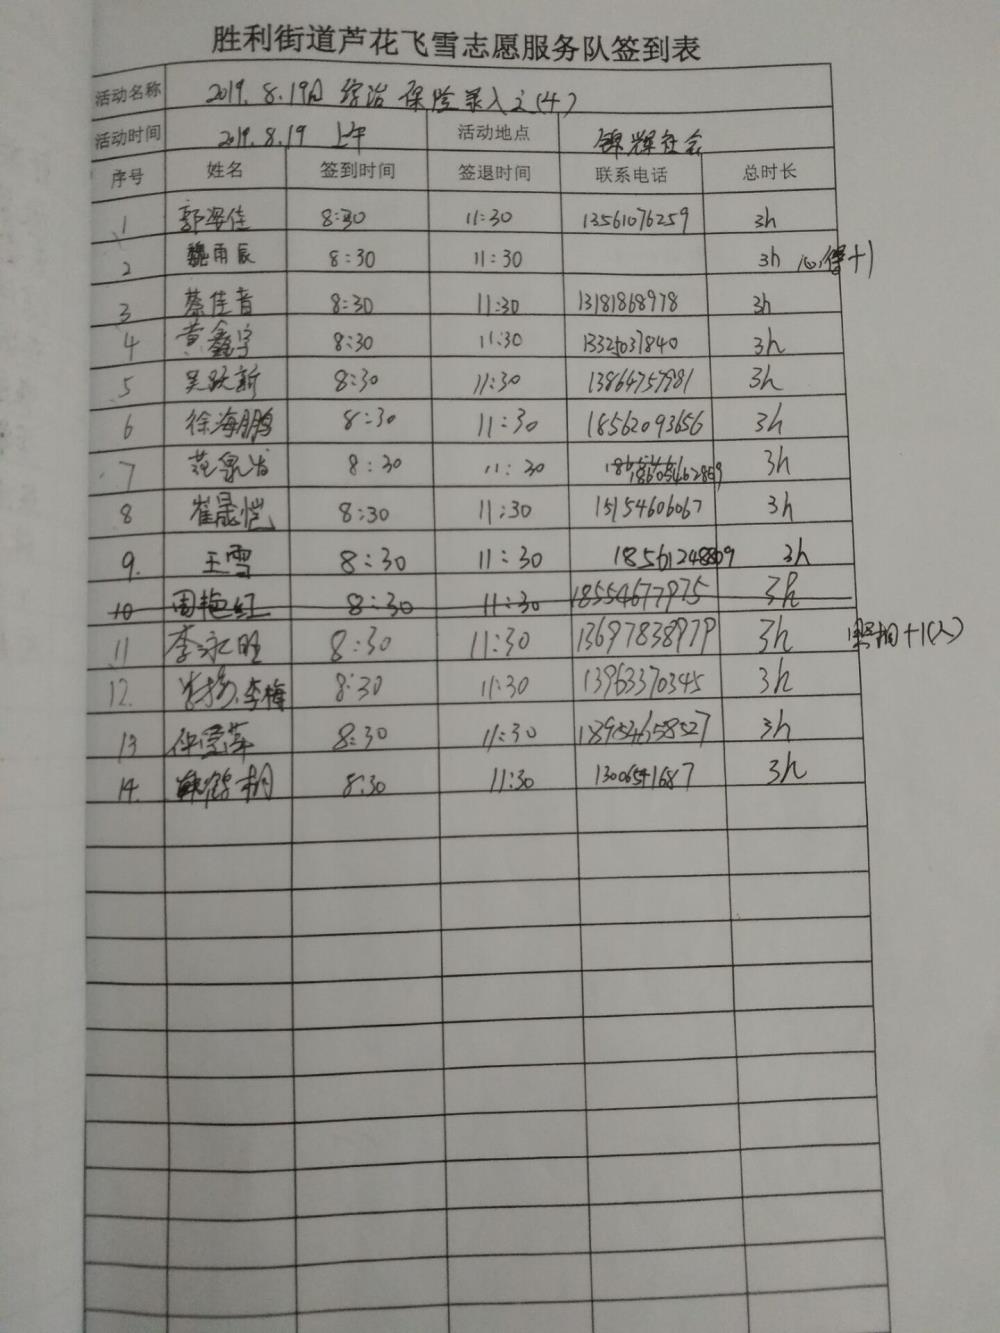 胜利街道芦花飞雪志愿服务队签到表
活动名称 2019.8.19日 综治 保险录入之(4)
活动时间 2019.8.19 上午 活动地点 锦辉社会
序号 姓名 签到时间 签退时间 联系电话 总时长
1 郭姿佳 8:30 11:30 13561076259 3h
2 魏雨辰 8:30 11:30 3h 心得+1
3 蔡佳音 8:30 11:30 13181868978 3h
4 黄鑫宇 8:30 11:30 13325031840 3h
5 吴跃新 8:30 11:30 13864757981 3h
6 徐海鹏 8:30 11:30 18562093656 3h
7 8:30 11:30 3h
8 崔晟恺 8:30 11:30 15154606067 3h
9. 王雪 8:30 11:30 18561248809 3h
10 周艳红 8:30 11:30 18554677975 3h
11 李永旺 8:30 11:30 13697838979 3h 照相+1(人)
12. 李梅 8:30 11:30 13963370345 3h
13 8:30 11:30 18954658527 3h
14. 8:30 11:30 13006541687 3h